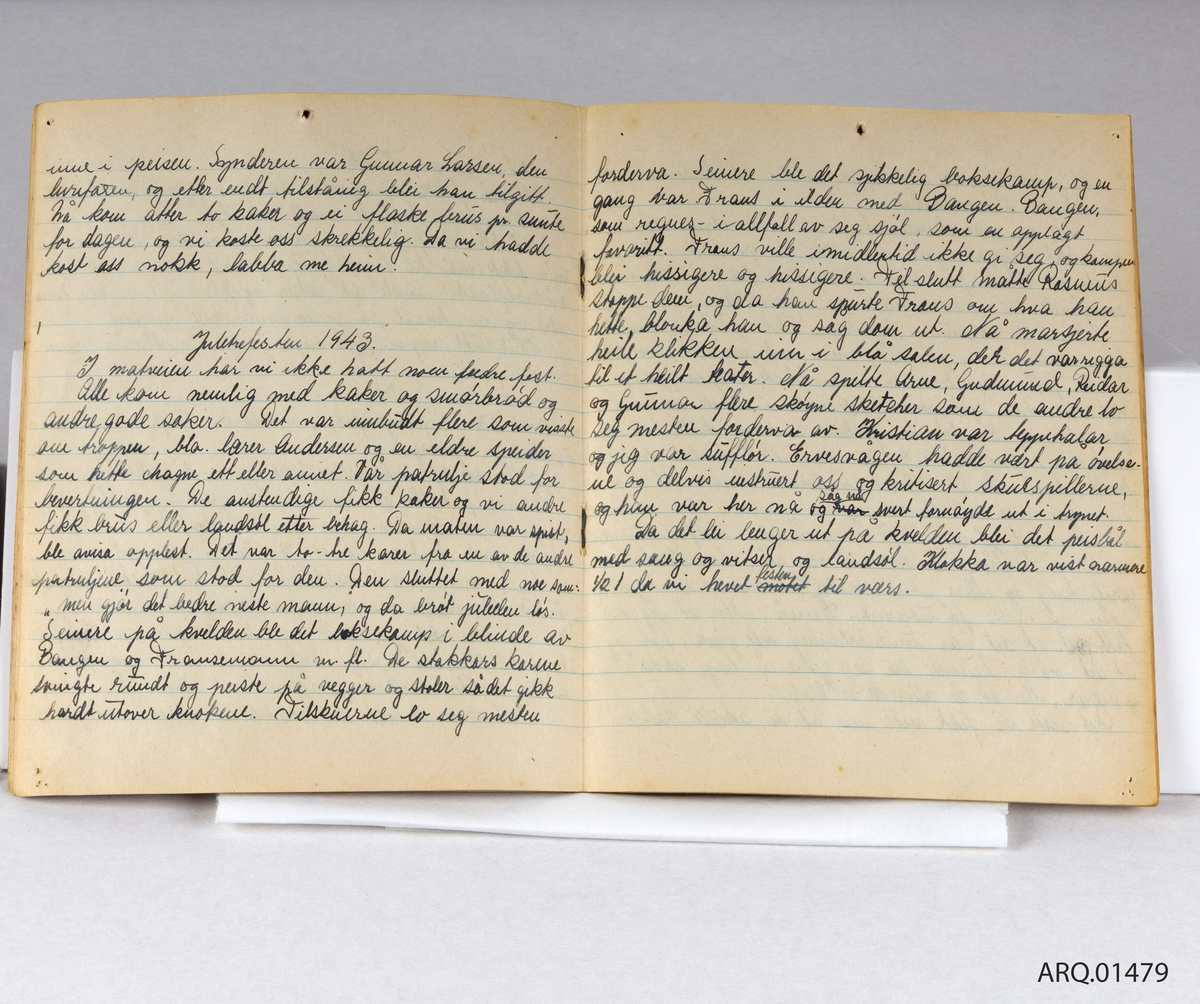 inne i peisen. Synderen var Gunnar Larsen, den
luringen, og etter endt tilståing blei han tilgitt.
Nå kom atter to kaker og ei flaske brus pr. snute
for dagen, og vi koste oss skrekkelig. Da vi hadde
kost oss nokk, labba me heim.
Juletrefesten 1943.
I matveien har vi ikke hatt noen bedre fest.
Alle kom nemlig med kaker og smørbrød og
andre gode saker. Det var innbudt flere som visste
om troppen, bla. lærer Andersen og en eldre speider
som hette chagne ett eller annet. Vår patrulje stod for
bevertningen. De anstendige fikk kaker og vi andre
fikk brus eller landsøl etter behag. Da maten var spist,
ble avisa opplest. Det var to-tre karer fra en av de andre
patruljene som stod for den. Den sluttet med noe som:
„men gjør det bedre neste mann", og da brøt jubelen løs.
Seinere på kvelden ble det boksekamp i blinde av
Bangen og Fransemann m. fl. De stakkars karene
svingte rundt og peiste på vegger og stoler så det gikk
hardt utover knokene. Tilskuerne lo seg mesten
forderva. Seinere ble det sjikkelig boksekamp, og en
gang var Frans i ilden med Bangen. Bangen,
som regnes - i allfall av seg sjøl, som en opplagt
favoritt. Frans ville imidlertid ikke gi seg, og kampen
blei hissigere og hissigere. Til slutt måtte Rasmus
stoppe dem, og da han spurte Frans om hva han
hette, blonka han og såg dom ut. Nå marsjerte
heile klikken inn i blå salen, der det var rigga
til et heilt teater. Nå spilte Arne, Gudmund, Reidar
og Gunnar flere skøyne sketcher som de andre lo
seg mesten forderva av. Kristian var teppehalar
og jig var sufflør. Ervesvågen hadde vært på øvelse-
ne og delvis instruert oss og kritisert skuespillerne,
og han var her nå og var såg nå svert fornøyde ut i trynet.
Da det lei lenger ut på kvelden blei det peisbål
med sang og vitser, og landsøl. Klokka var vist nærmere
1/2 1 da vi hevet møtet festen til værs.
ARQ.01479